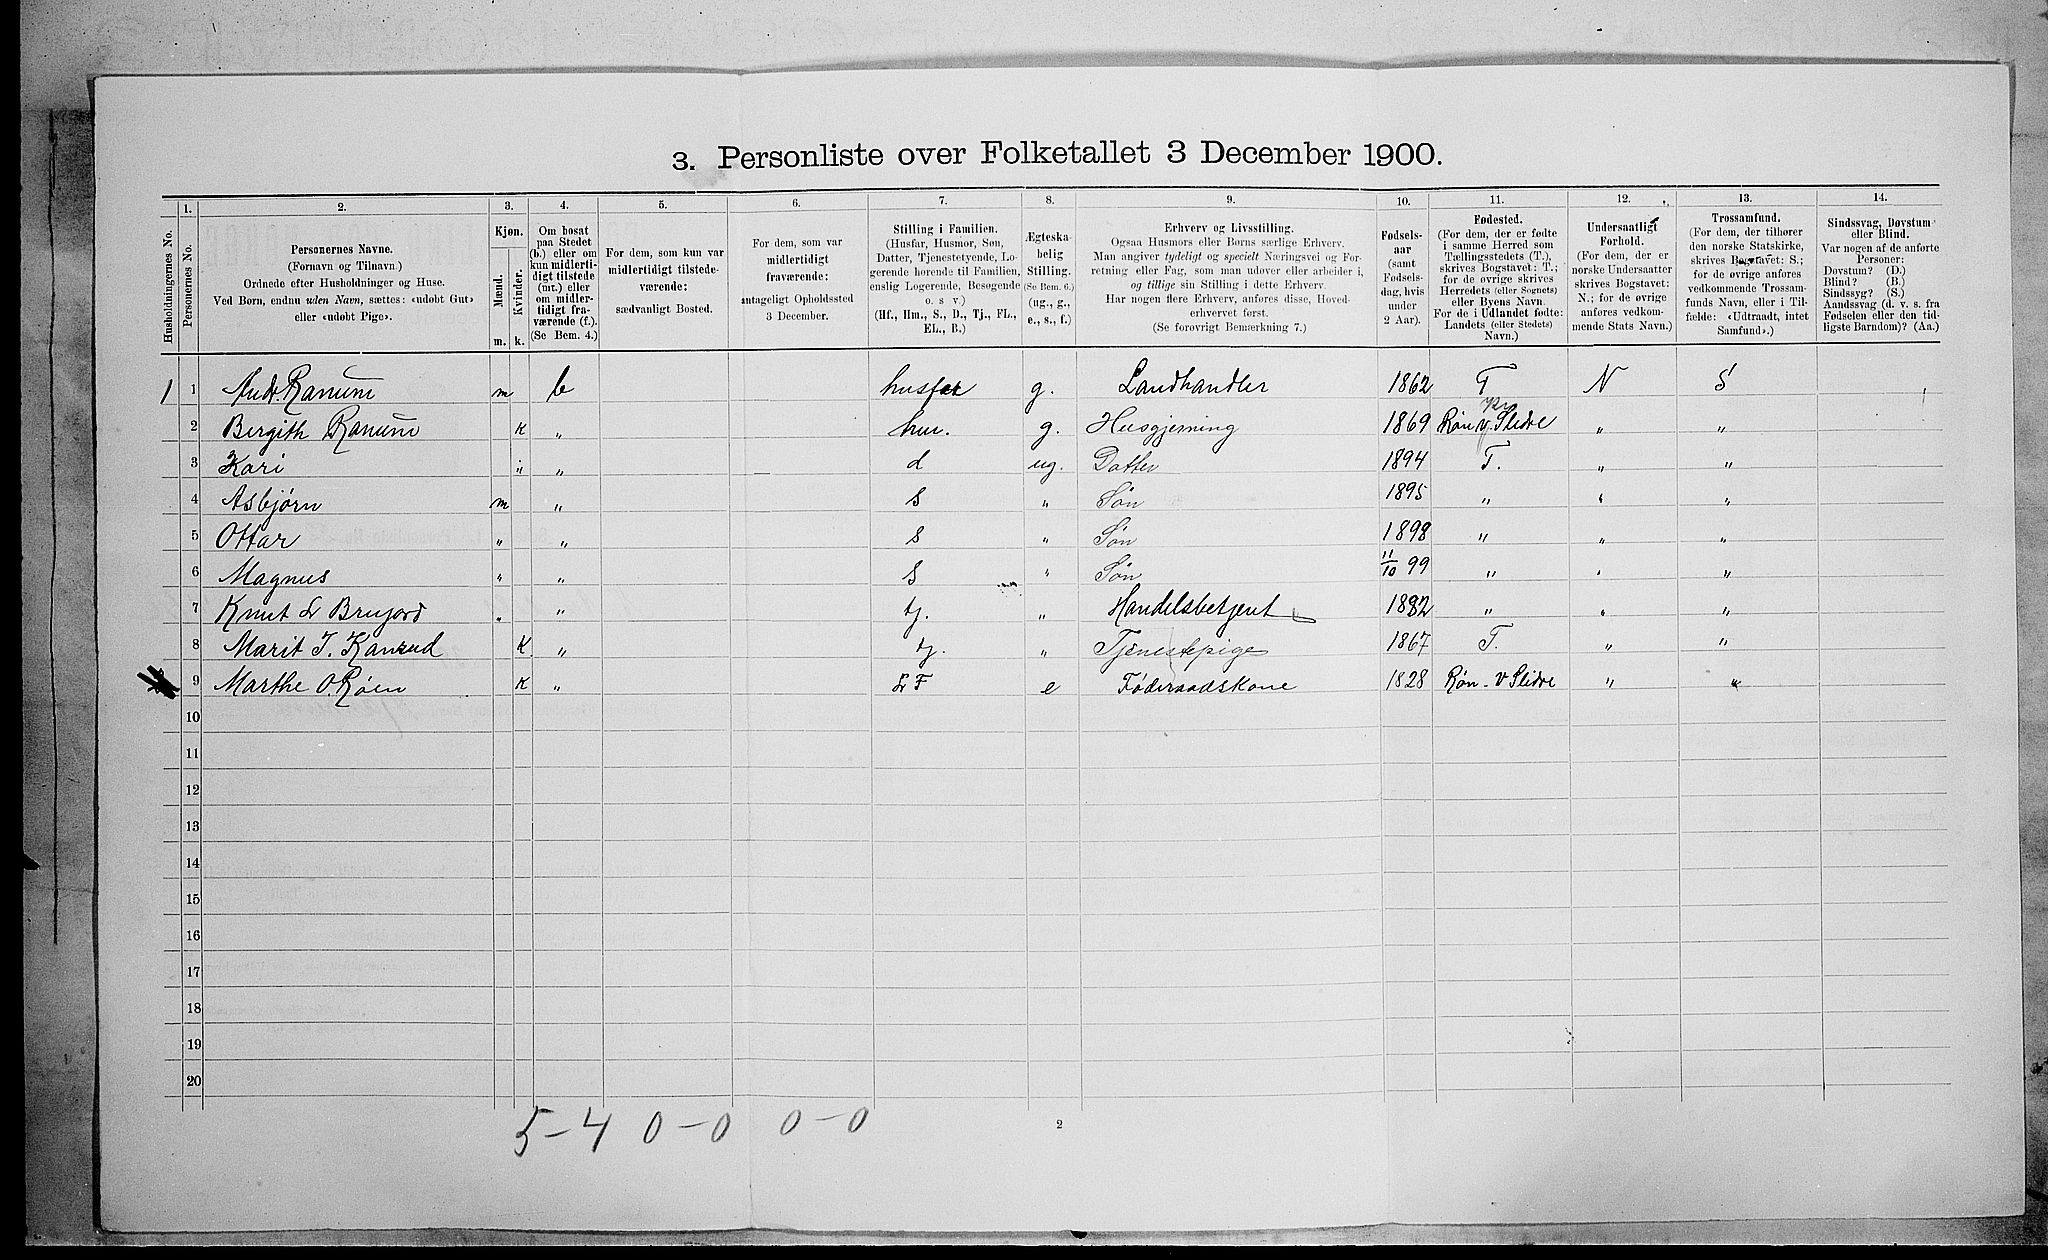 3. Personliste over Folketallet 3 December 1900.
Husholdningernes No.
1.
Personernes No.
2.
Personernes Navne.
(Fornavn og Tilnavn.)
Ordnede efter Husholdninger og Huse.
Ved Børn, endnu uden Navn, sættes: «udøbt Gut»
eller «udøbt Pige».
3.
Kjøn.
Mænd.
Kvinder.
m. k.
4.
Om bosat
paa Stedet
(b.) eller om
kun midlerti-
digt tilstede
(mt.) eller
om midler-
tidigt fra-
værende (f.).
(Se Bem. 4.)
5.
For dem, som kun var
midlertidigt tilstede-
værende:
sædvanligt Bosted.
6.
For dem, som var
midlertidigt
fraværende:
antageligt Opholdssted
3 December.
7.
Stilling i Familien.
(Husfar, Husmor, Søn,
Datter, Tjenestetyende, Lo-
gerende hørende til Familien,
enslig Logerende, Besøgende
o. s v.)
(Hf., Hm., S., D., Tj., FL.,
EL., B.)
8.
Ægteska-
belig
Stilling.
(Se Bem. 6.)
(ug., g.,
e., s., f.)
9.
Erhverv og Livsstilling.
Ogsaa Husmors eller Børns særlige Erhverv.
Man angiver tydeligt og specielt Næringsvei og For-
retning eller Fag, som man udøver eller arbeider i,
og tillige sin Stilling i dette Erhverv.
Har nogen flere Erhverv, anføres disse, Hoved-
erhvervet først.
(Se forøvrigt Bemærkning 7.)
10.
Fødsels-
aar
(samt
Fødsels-
dag, hvis
under
2 Aar).
11.
Fødested.
(For dem, der er fødte
i samme Herred som
Tællingsstedets (T.),
skrives Bogstavet: T.;
for de øvrige skrives
Herredets (eller Sognets)
eller Byens Navn.
For de i Udlandet fødte:
Landets (eller Stedets)
Navn.)
12.
Undersaatligt
Forhold.
(For dem, der er
norske Undersaatter
skrives Bogstavet:
N.; for de øvrige
anføres vedkom-
mende Stats Navn.)
13.
Trossamfund.
(For dem, der tilhører
den norske Statskirke,
skrives Bogstavet: S.;
for de øvrige anføres
vedkommende Trossam-
funds Navn, eller i Til-
fælde: «Udtraadt, intet
Samfund».)
14.
Sindssvag, Døvstum
eller Blind.
Var nogen af de anførte
Personer:
Døvstum? (D.)
Blind? (B.)
Sindssyg? (S.)
Aandssvag (d. v. s. fra
Fødselen eller den tid-
ligste Barndom)? (Aa.)
1 1 Andr. Ranum m b husfar g. Landhandler 1862 T N S
2 Bergith Ranum K " hm. g. Husgjerning 1869 Røn v. Slidre " "
3 Kari " " d ug. Datter 1894 T. " "
4 Asbjørn m " S " Søn 1895 " " "
5 Ottar " " S " Søn 1898 " " "
6 Magnus " " S " Søn 11/10 99 " " "
7 Knut Brujord " " tj. " Handelsbetjent 1882 " " "
8 Marit T. Kanrud K " tj. " Tjenestepige 1867 T. " "
9 Marthe O. Røen K " F e Føderaadskone 1828 Røn - V Slidre " "
10
11
12
13
14
15
16
17
18
19
20
5-4 0-0 0-0
2